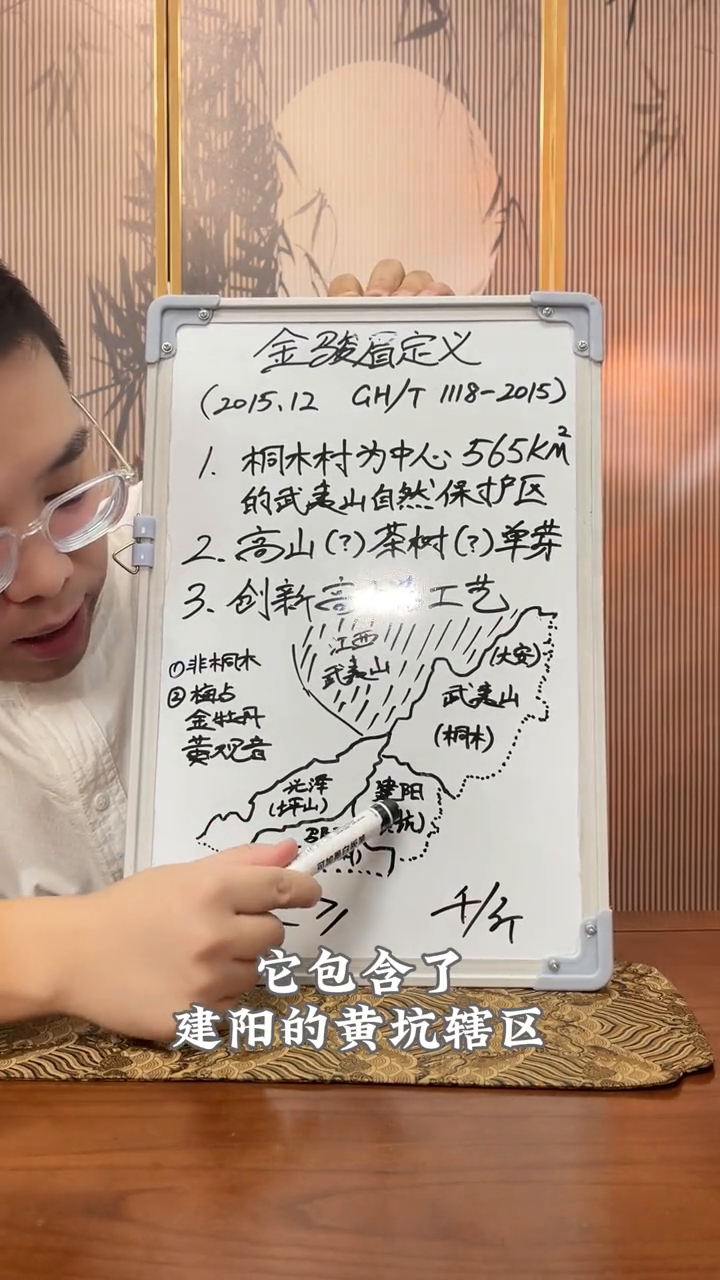 金骏眉定义
(2015.12 GH/T 1118-2015)
1. 桐木村为中心 565KM²
的武夷山自然保护区
2. 高山(?)茶树(?)单芽
3. 创新 工艺
江西
武夷山
(大安)
武夷山
(桐木)
①非桐木
②梅占
金牡丹
黄观音
光泽
(坪山)
建阳
坑)
千/斤
它包含了
建阳的黄坑辖区